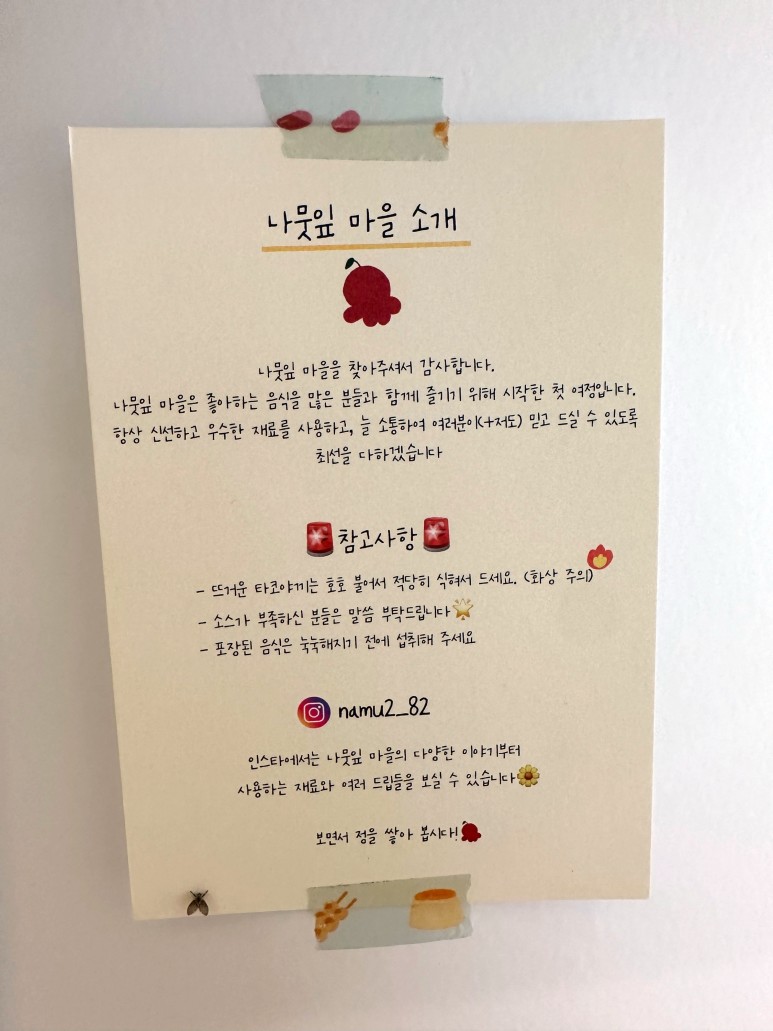 나뭇잎 마을 소개
나뭇잎 마을을 찾아주셔서 감사합니다.
나뭇잎 마을은 좋아하는 음식을 많은 분들과 함께 즐기기 위해 시작한 첫 여정입니다.
항상 신선하고 우수한 재료를 사용하고, 늘 소통하여 여러분이(+저도) 믿고 드실 수 있도록
최선을 다하겠습니다
참고사항
- 뜨거운 타코야끼는 호호 불어서 적당히 식혀서 드세요. (화상 주의)
- 소스가 부족하신 분들은 말씀 부탁드립니다
- 포장된 음식은 눅눅해지기 전에 섭취해 주세요
namu2_82
인스타에서는 나뭇잎 마을의 다양한 이야기부터
사용하는 재료와 여러 드립들을 보실 수 있습니다
보면서 정을 쌓아 봅시다!